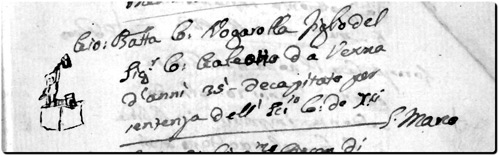 Gio: Batta Co: Nogarolla figlio del
Sigr Co: Galeotto da Verna
d'anni 35 c.a decapitato per
sentenza dell' Ecc.so C: de X.ci
S. Marco